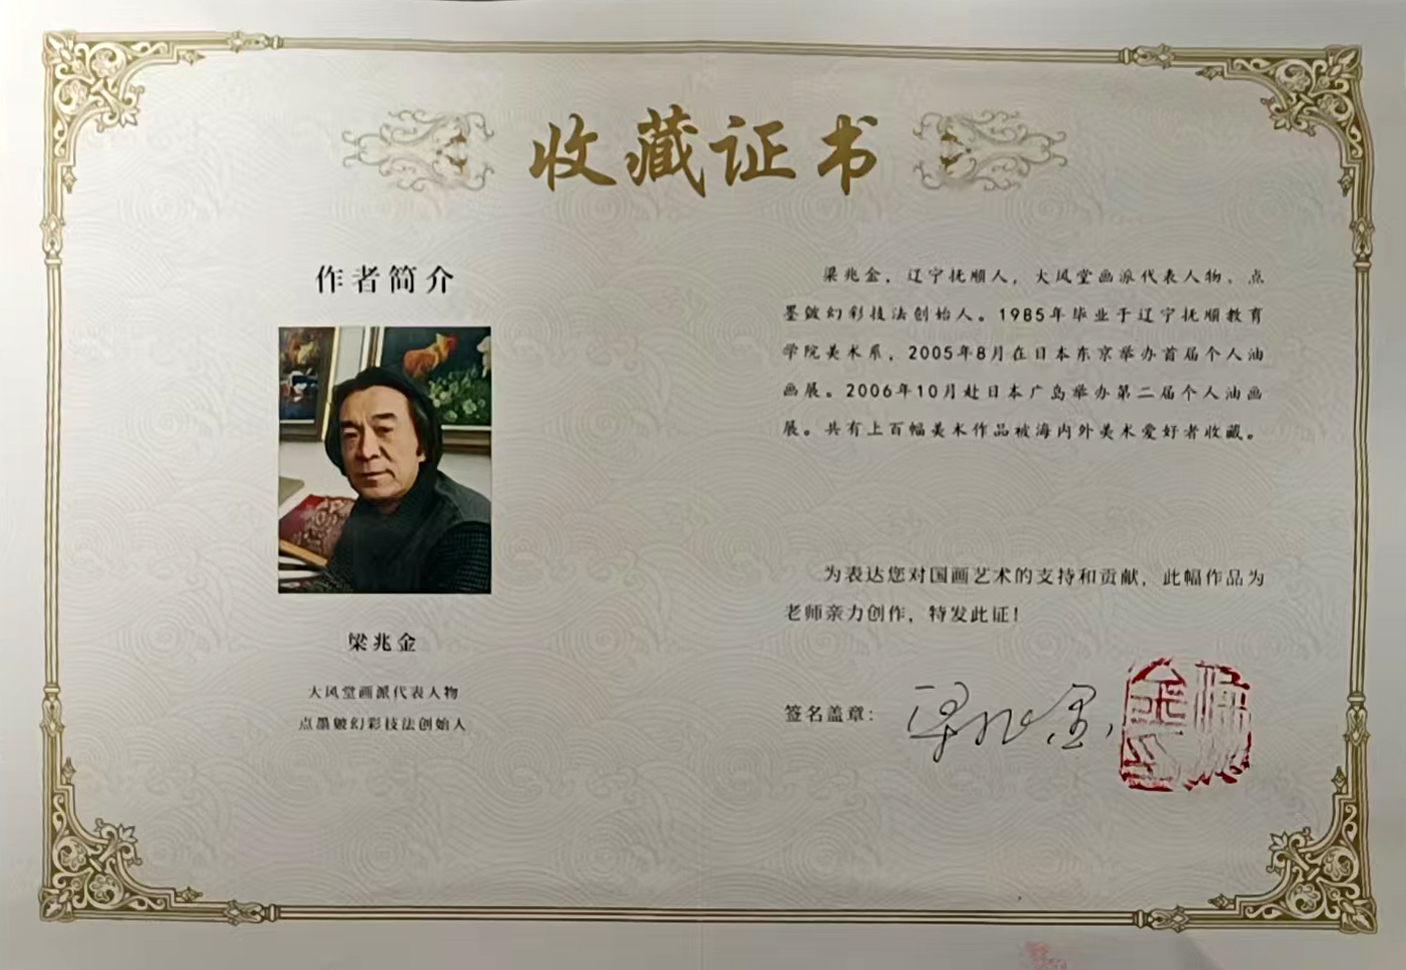 收藏证书
作者简介
梁兆金
大风堂画派代表人物
点墨皴幻彩技法创始人
梁兆金，辽宁抚顺人，大风堂画派代表人物、点
墨皴幻彩技法创始人。1985年毕业于辽宁抚顺教育
学院美术系，2005年8月在日本东京举办首届个人油
画展。2006年10月赴日本广岛举办第二届个人油画
展。共有上百幅美术作品被海内外美术爱好者收藏。
为表达您对国画艺术的支持和贡献，此幅作品为
老师亲力创作，特发此证！
签名盖章：梁兆金